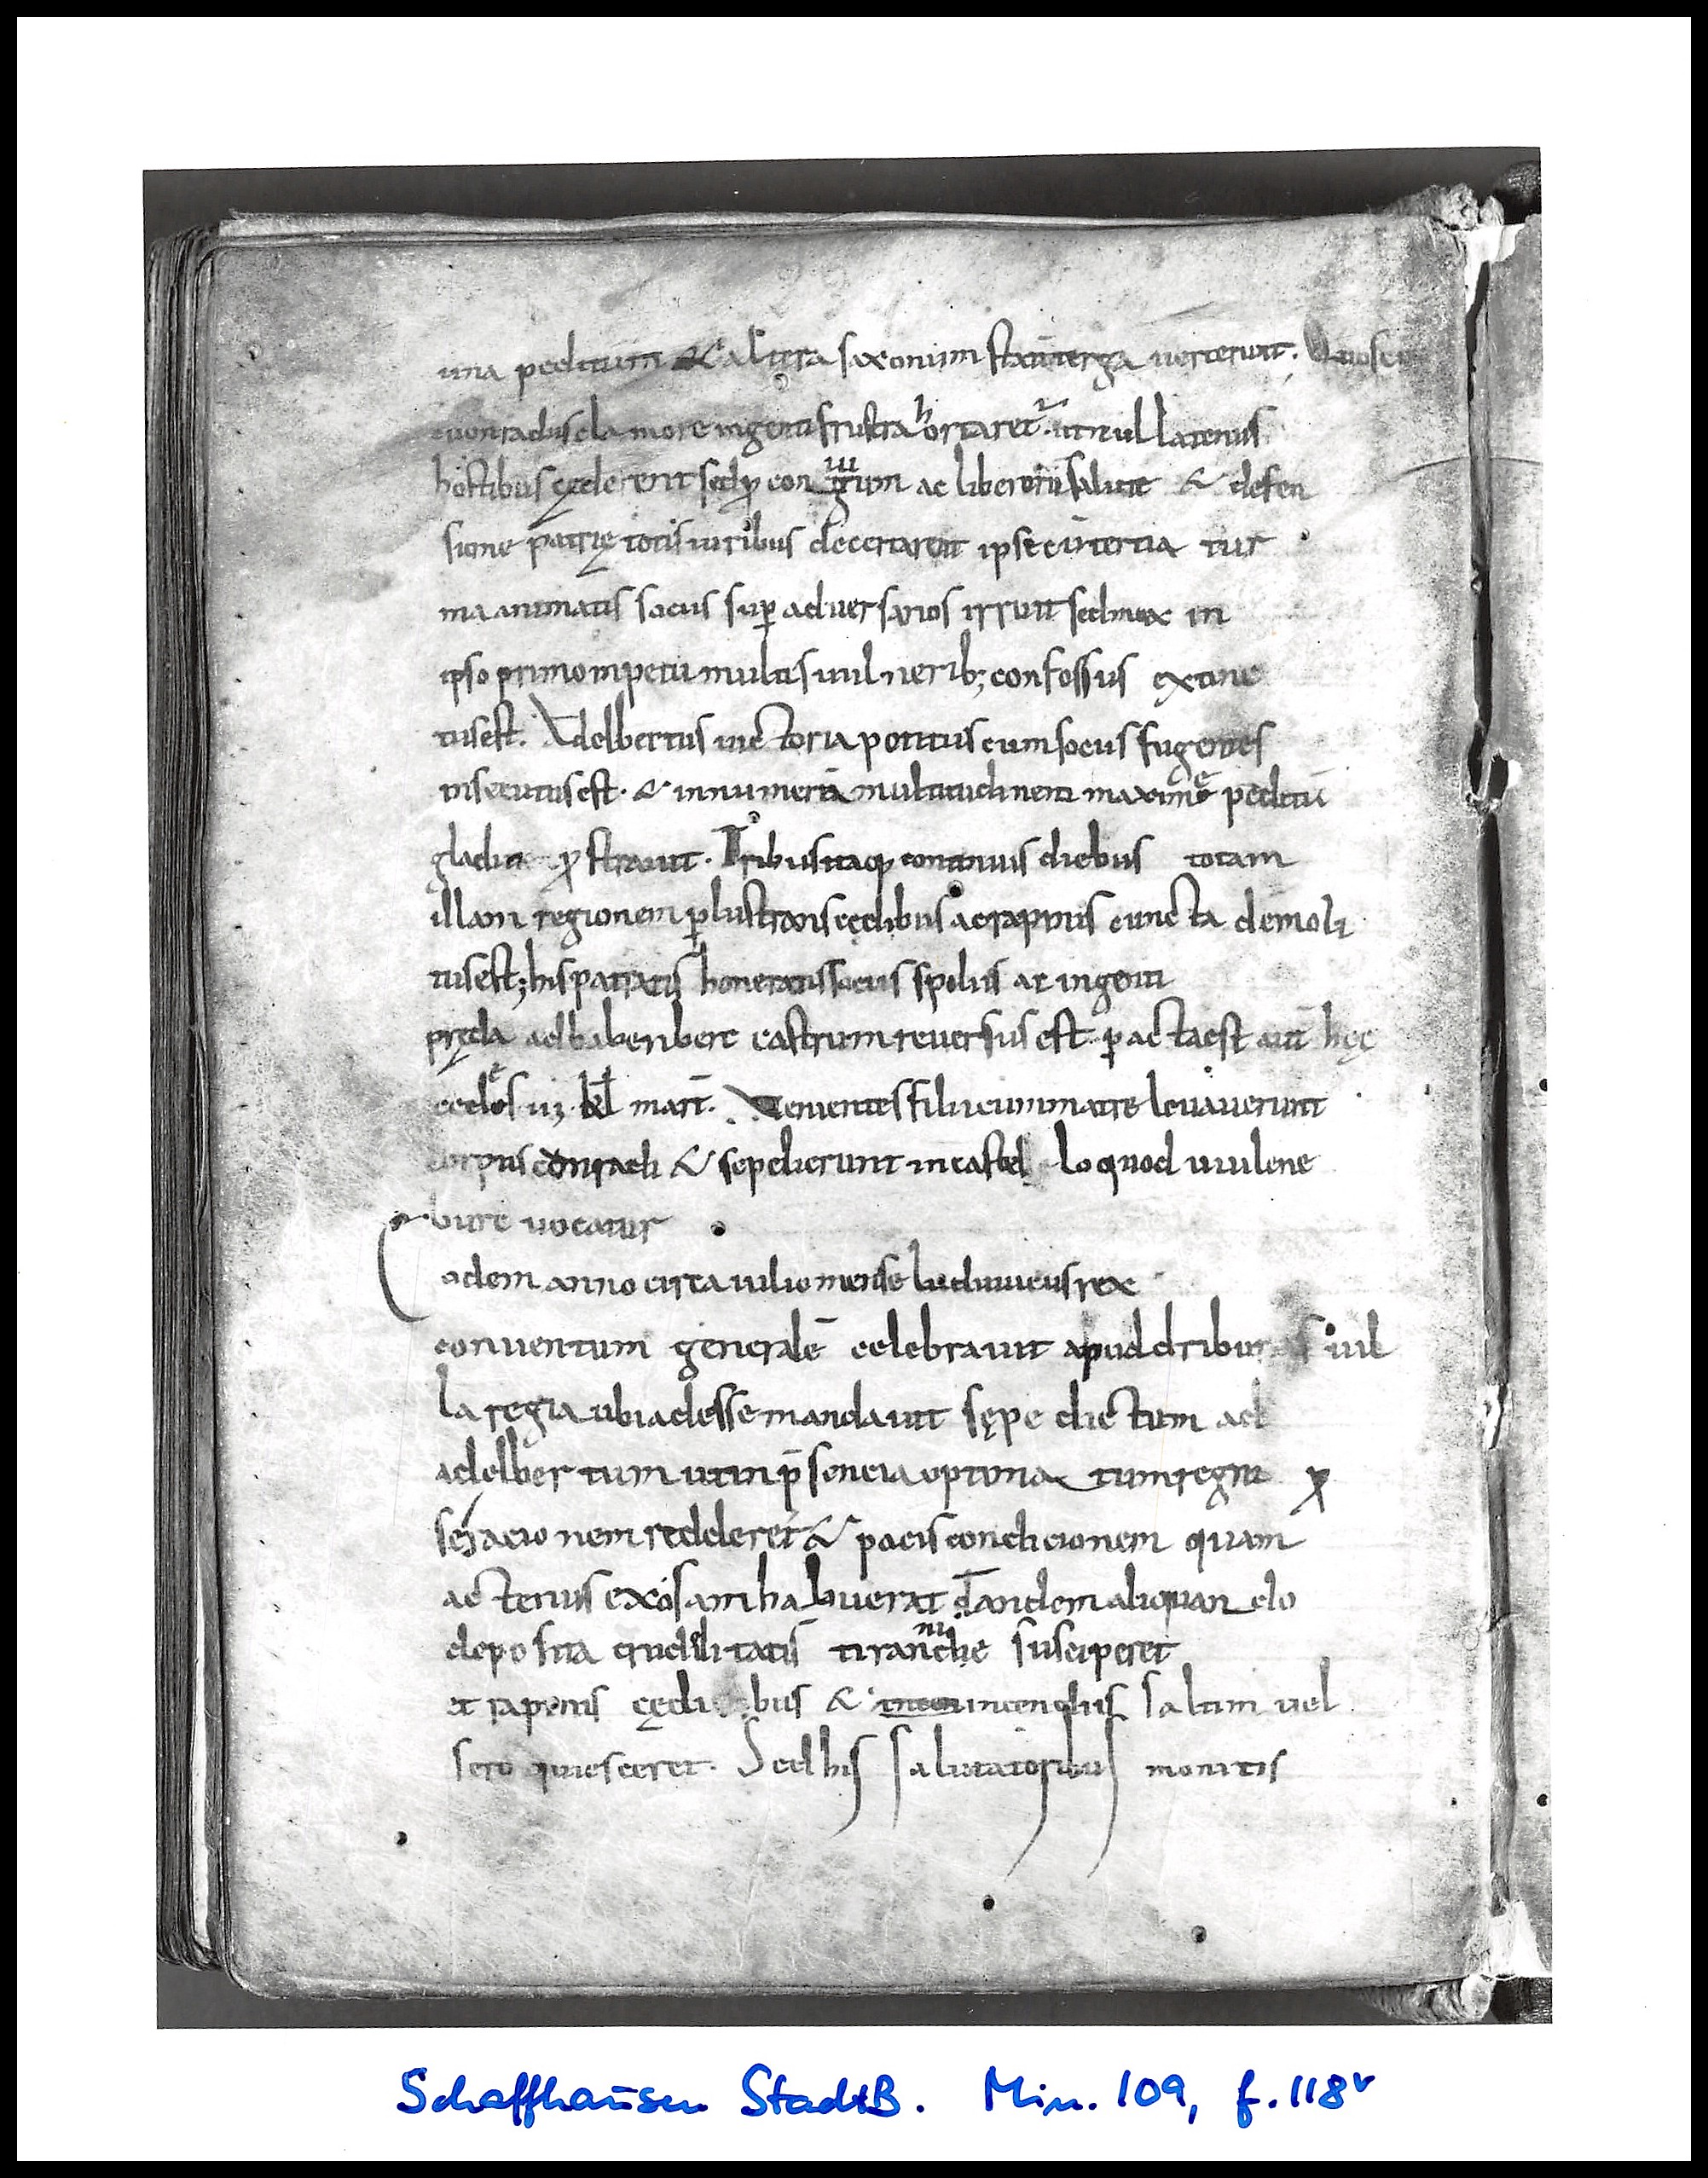 una peditum & altera saxonum statī terga verterunt. Quos cū
cuonradus clamore ingenti frustra hortaret᷑. ut nullatenus
hostibus cęderent sed ꝓ coniugum ac liberorū salute & defen
sione patrię totis uiribus decertarent ipse cū tertia tur
ma animatis sociis suꝑ adversarios irruit sed mox in
ipso primo inpetu multis uulnerib; confossus extinc
tus est. Adelbertus uictoria potitus cum sociis fugientes
insecutus est. & innumerā multitudinem maxime peditū
gladio ꝓstrauit. Tribus itaq; continuis diebus totam
illam regionem ꝑlustrans cędibus ac rapinis cuncta demoli
tus est; his patratis honeratis sociis spoliis at ingenti
pręda ad babenberc castrum reuersus est ꝑacta est aūt hęc
cedes iiį kł mart̄. Venientes filii cum matre levaverunt
corpus conradi & sepelierunt in castello quod uuilene
burc uocatur
odem anno circa iulio mense luduuicus rex
conventum generalē celebrauit apud driburas uil
la regia ubi adesse mandauit sępe dictum ad
adelbertum ut in p̄sencia optimatum regni ꝓ
se racionem redderet & pacis condicionem quam
actenus exosam habuerat tandem aliquando
deposita crudelitatis tirannide susciperet
et rapinis cędibus & incen incendiis saltim vel
sero quiesceret. Sed his salutatoribus monitis
Schaffhausen StadtB. Min. 109, f. 118v